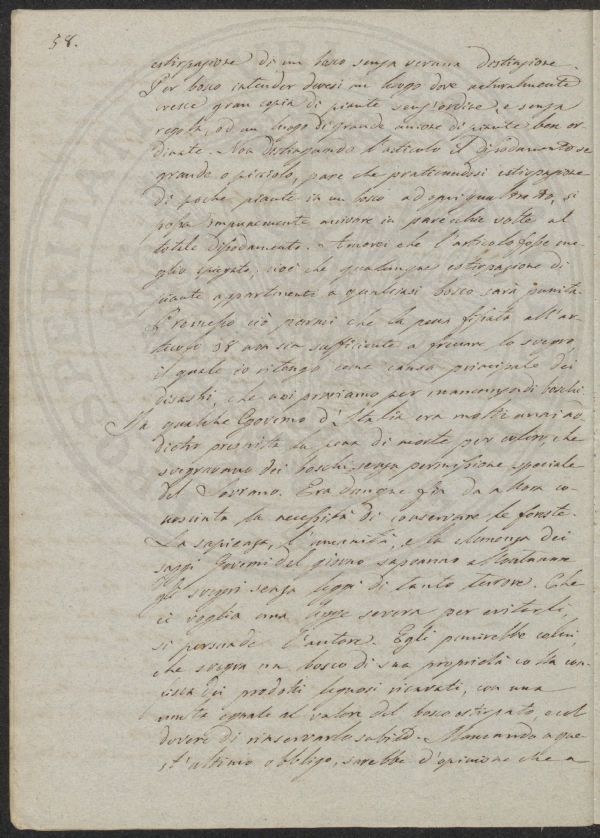 58.
estirpazione di un bosco senza veruna distinzione.
Per bosco intender devesi un luogo dove naturalmente
cresce gran copia di piante senz'ordine, e senza
regola, od un luogo di grande unione di piante ben or-
dinate. Non distinguendo l'articolo il disodamento se
grande o picciolo, pare che praticandosi estirpazione
di poche piante in un bosco ad ogni qual tratto, si
possa impunemente arrivare in parecchie volte al
totale disodamento. Amerei che l'articolo fosse me-
glio spiegato, cioè che qualunque estirpazione di
piante appartenenti a qualsiasi bosco sarà punita.
Promesso ciò parmi che la pena fissata all'ar-
ticolo 38 non sia sufficiente a frenare lo svegro,
il quale io ritengo come causa principale dei
disastri, che noi proviamo per mancanza di boschi.
In qualche Governo d'Italia era molti anni ad-
dietro prescritta la pena di morte per coloro, che
svegravano dei boschi senza permissione speciale
del Sovrano. Era dunque fin da allora co-
nosciuta la necessità di conservare le foreste.
La sapienza, l'umanità, e la clemenza dei
saggi Governi del giorno sapranno allontanare
gli svegri senza leggi di tanto terrore. Che
ci voglia una legge severa per evitarli,
si persuade l'autore. Egli punirebbe colui,
che svegra un bosco di sua proprietà colla con-
fisca dei prodotti legnosi ricavati, con una
multa eguale al valore del bosco estirpato, e col
dovere di rinselvarlo subito. Mancando a que-
st'ultimo obbligo, sarebbe d'opinione che a